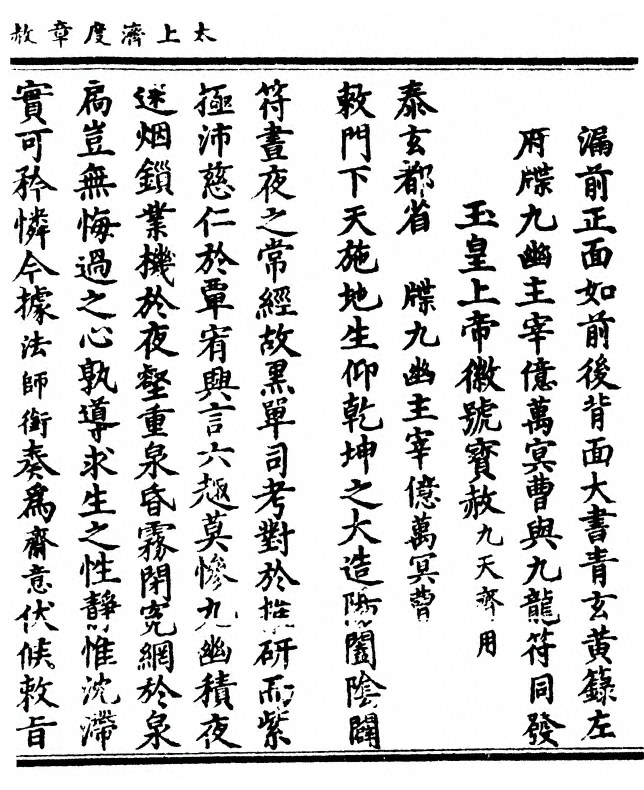 太上濟度章赦
漏前正面如前後背面大書青玄黃籙左
府牒九幽主宰億萬冥曹與九龍符同發
玉皇上帝徽號寳赦九天齋用
泰玄都省 牒九幽主宰億萬冥曹
敕門下天施地生仰乾坤之大造陽闔陰闢
符晝夜之常經故黑單司考對於研而紫
極沛慈仁於覃宥興言六趣莫慘九幽積夜
迷烟鎖業機於夜壑重泉昏霧閉寃網於泉
扃豈無悔過之心孰導求生之性靜惟沈滯
實可矜憐今據法師銜奏爲齋意伏候敕旨